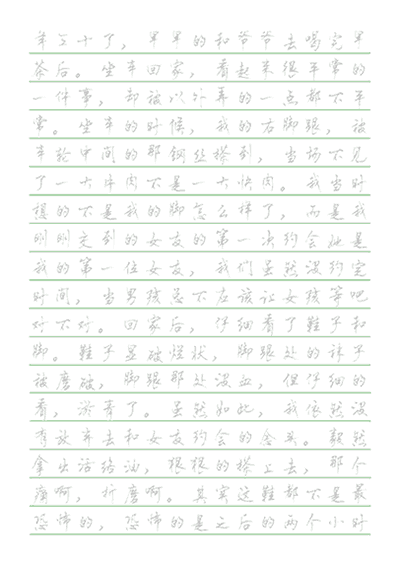 年三十了，早早的和爷爷去喝完早
茶后。坐车回家，看起来很平常的
一件事，却被以外弄的一点都不平
常。坐车的时候，我的右脚跟，被
车轮中间的那钢丝搭到，当场不见
了一大块肉不是一大快肉。我当时
想的不是我的脚怎么样了，而是我
刚刚定到的女友的第一次约会她是
我的第一位女友，我们虽然没约定
时间，当男孩总不应该让女孩等吧
对不对。回家后，仔细看了鞋子和
脚。鞋子显破烂状，脚跟处的袜子
被磨破，脚跟那处没血，但仔细的
看，流青了。虽然如此，我依然没
有放弃去和女友约会的念头。毅然
拿出活络油，狠狠的搽上去，那个
痛啊，折磨啊。其实这鞋都不是最
恐怖的，恐怖的是之后的两个小时